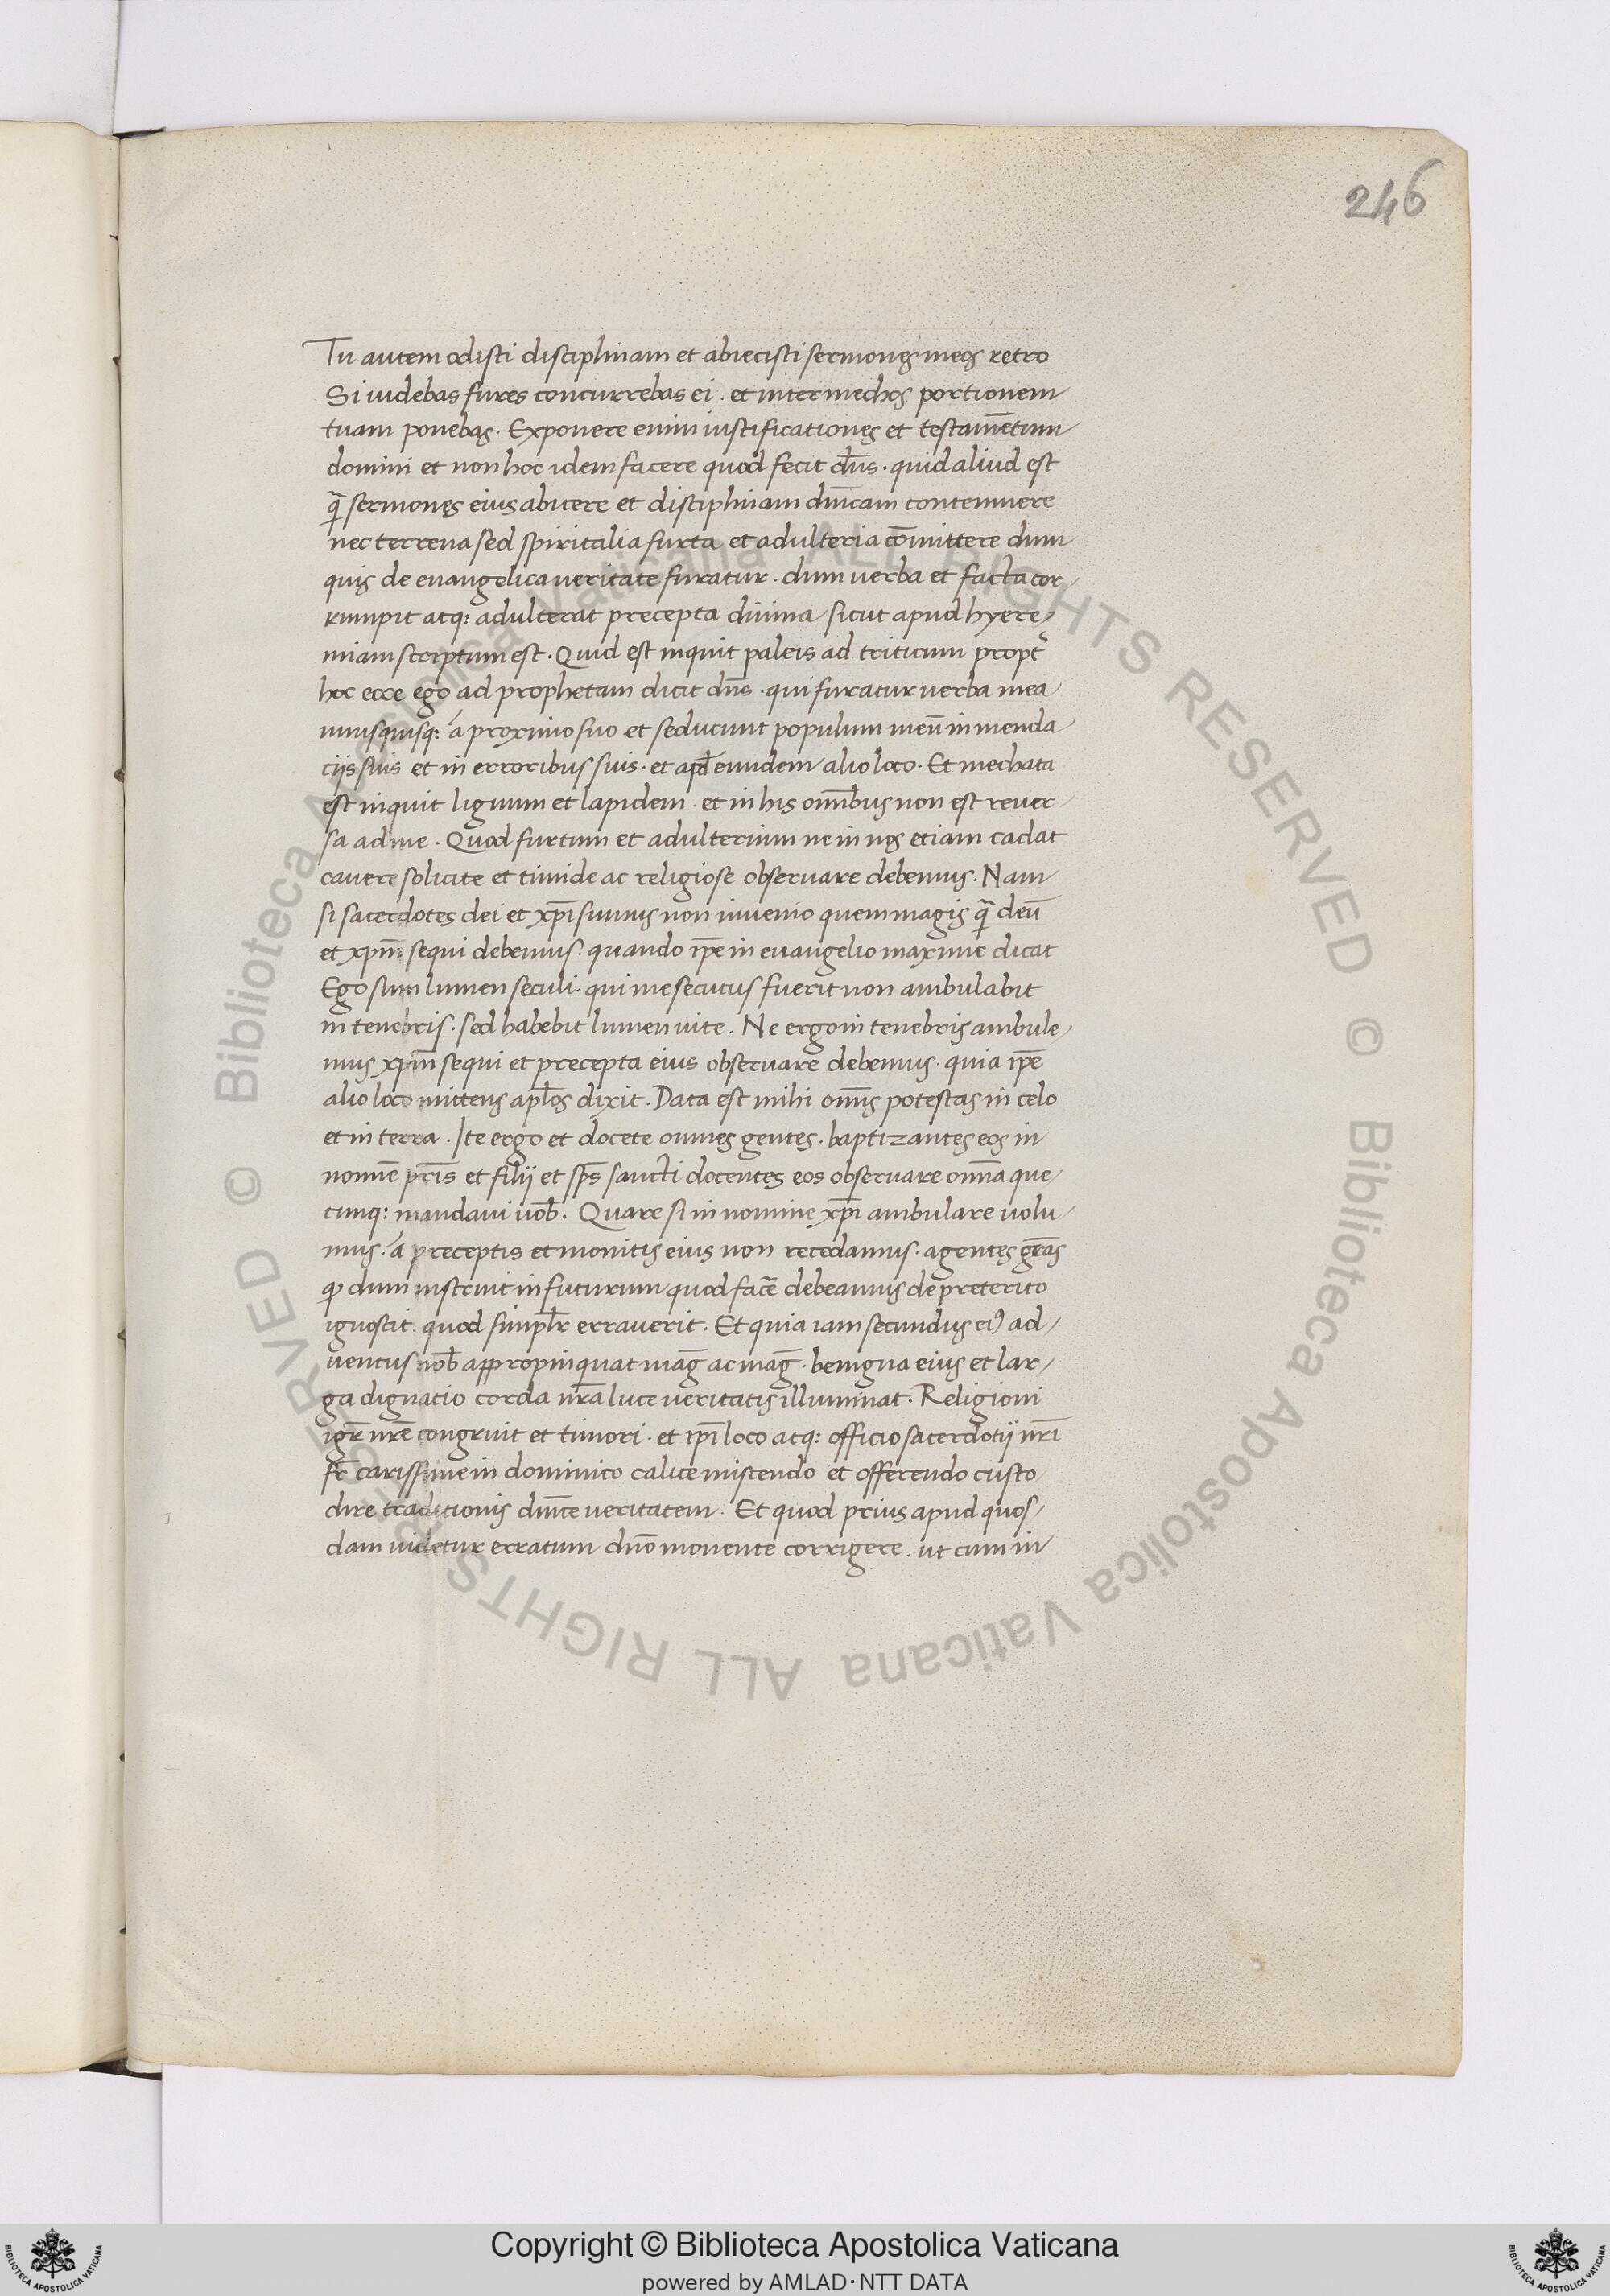 246
Tu autem odisti disciplinam et abiecisti sermones meos retro
Si uidebas fures concurrebas ei · et inter mechos portionem
tuam ponebas · Exponere enim iustificationes et testam̄etum
domini et non hoc idem facere quod fecit dn̄s · quid aliud est
q̄ sermones eius abicere et disciplinam dn̄icam contemnere
nec terrena sed spiritalia furta et adulteria cōmittere dum
quis de euangelica ueritate furatur · dum uerba et facta cor-
rumpit atq: adulterat precepta diuina sicut apud hyere-
miam scriptum est · Quid est inquit paleis ad triticum propt̄
hoc ecce ego ad prophetam dicit dn̄s · qui furatur uerba mea
unusquisq: á proximo suo et seducunt populum meū in menda
ciis suis et in erroribus suis · et apd̄ eundem alio loco · Et mechata
est inquit lignum et lapidem · et in his om̄ibus non est reuer-
sa ad me · Quod furtum et adulterium ne in nos etiam cadat
cauere solicite et timide ac religiose obseruare debemus · Nam
si sacerdotes dei et xp̄i sumus non inuenio quem magis q̄ deū
et xpm̄ sequi debemus · quando ip̄e in euangelio maxime dicat
Ego sum lumen seculi · qui me secutus fuerit non ambulabit
in tenebris · sed habebit lumen uite · Ne ergo in tenebris ambule-
mus xpm̄ sequi et precepta eius obseruare debemus · quia ip̄e
alio loco mittens apl̄os dixit · Data est mihi om̄is potestas in celo
et in terra · Ite ergo et docete omnes gentes · baptizantes eos in
nomīe pr̄is et filij et sp̄s sancti docentes eos obseruare om̄ia que-
cunq: mandaui uob̄ · Quare si in nomine xp̄i ambulare uolu-
mus · á preceptis et monitis eius non recedamus · agentes gr̄as
qꝫ dum instruit in futurum quod facē debeamus de preterito
ignoscit · quod simpl̄r errauerit · Et quia iam secundus eiꝰ ad-
uentus nob̄ appropinquat maḡ ac maḡ · benigna eius et lar-
ga dignatio corda nr̄a luce ueritatis illuminat · Religioni
igr̄ nr̄e congruit et timori · et ip̄i loco atq: officio sacerdotij nr̄i
fr̄ carissime in dominico calice miscendo et offerendo custo-
dire traditionis dn̄ice ueritatem · Et quod prius apud quos-
dam uidetur erratum dn̄o monente corrigere · ut cum in
© Biblioteca Apostolica Vaticana ALL RIGHTS RESERVED © Biblioteca Apostolica Vaticana ALL RIGHTS RESERVED
Copyright © Biblioteca Apostolica Vaticana
powered by AMLAD·NTT DATA
BIBLIOTECA APOSTOLICA VATICANA
BIBLIOTECA APOSTOLICA VATICANA